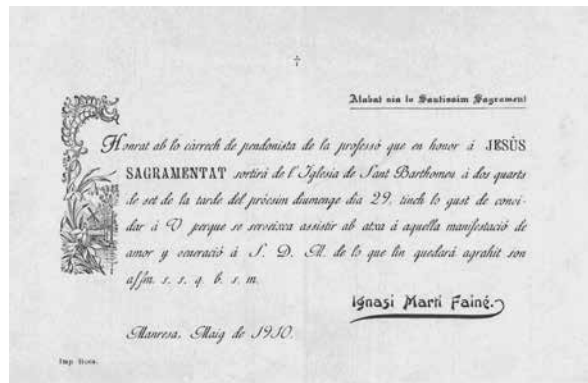 †
Alabat sia lo Santissim Sagrament
Honrat ab lo càrrech de pendonista de la professó que en honor á JESÚS
SAGRAMENTAT sortirá de l' Iglesia de Sant Barthomeu á dos quarts
de set de la tarde del pròcsim diumenge dia 29, tinch lo gust de convi-
dar á V perque se serveixca assistir ab atxa á aquella manifestació de
amor y veneració á S. D. M. de lo que lin quedará agrahit son
affm. s. s. q. b. s. m.
Ignasi Martí Fainé.
Manresa, Maig de 1910.
Imp. Roca.